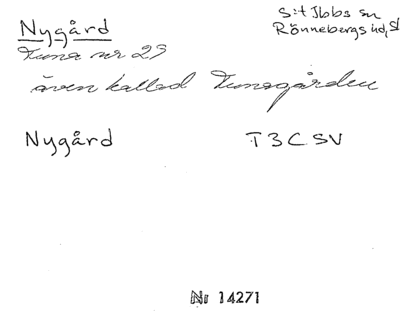 Nygård
S:t Ibbs sn
Rönnebergs hd, Sk
Tuna nr 29
även kallad Tunagården
Nygård T3C SV
Nr 14271